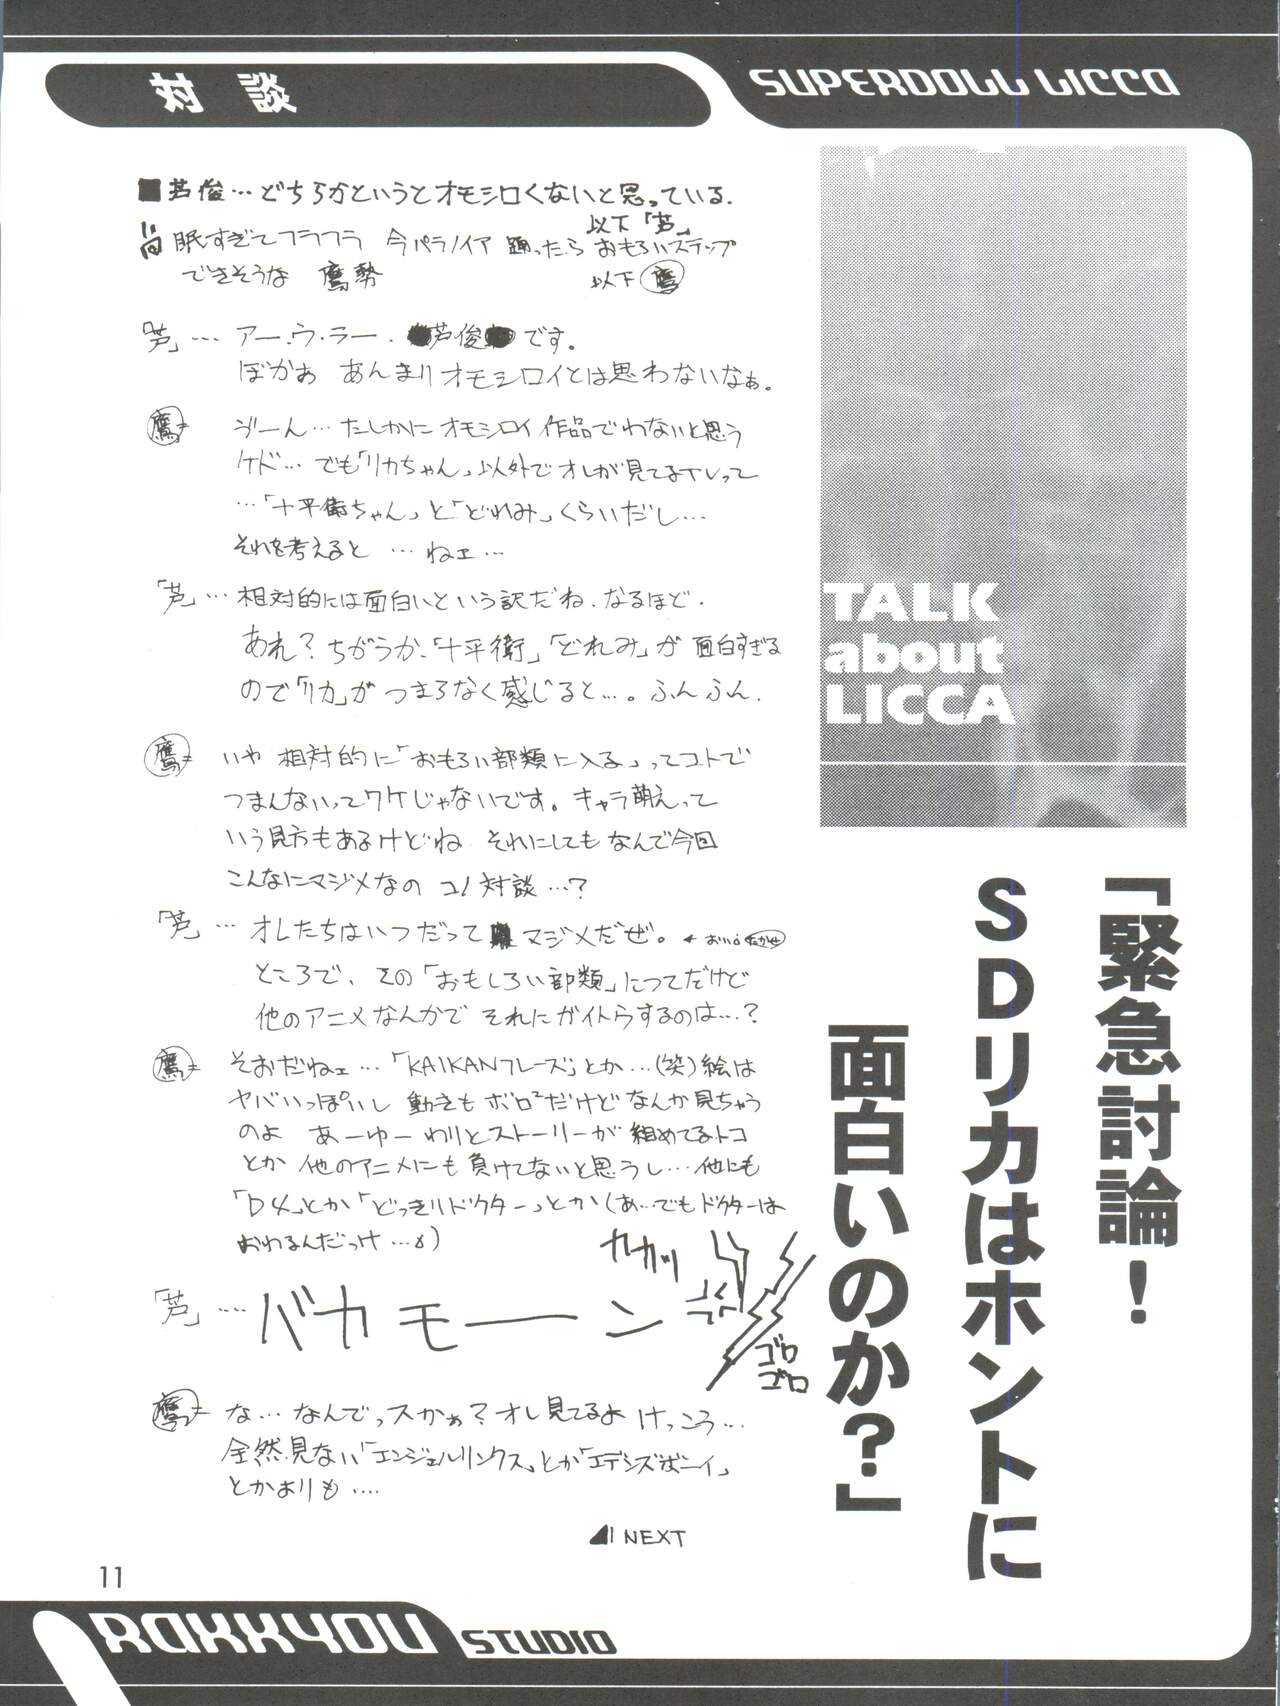 対談
SUPERDOLL LICCA
■芦俊…どちらかというとオモシロくないと思っている.
以下「芦」
眠すぎてフラフラ 今パラノイア 踊ったら おもろいステップ
できそうな 鷹勢 以下 鷹
「芦」… アー・ウ・ラー・ 芦俊 です。
ぼかぁ あんまりオモシロイとは思わないなぁ。
鷹= ジーん…たしかに オモシロイ作品でわないと思う
ケド… でも「リカちゃん」以外でオレが見てるTVって
…「十平衛ちゃん」と「どれみ」くらいだし…
それを考えると …ねェ…
「芦」… 相対的には面白いという訳だね、なるほど.
あれ?ちがうか、「十平衛」「どれみ」が 面白すぎる
ので「リカ」がつまらなく感じると…。ふんふん.
鷹= いや 相対的に「おもろい部類に入る」ってコトで
つまんないってワケじゃないです。キャラ萌えって
いう見方もあるけどね それにしても なんで今回
こんなにマジメなの コノ対談…?
「芦」… オレたちはいつだって マジメだぜ。 ←おい。たかせ
ところで、その「おもしろい部類」につてだけど
他のアニメなんかで それにガイトうするのは…?
鷹= そおだねェ…「KAIKANフレーズ」とか…(笑)絵は
ヤバいっぽいし 動きも ボロ²だけど なんか見ちゃう
のよ あーゆー わりとストーリーが 組めてるトコ
とか 他のアニメにも 負けてないと思うし…他にも
「D4」とか「どっきりドクター」とか(あ…でもドクターは
おわるんだっけ…。)
カカッ
「芦」… バカモーーン
ゴロ
ゴロ
鷹= な…なんでっスかぁ?オレ見てるよ けっこう…
全然見ない「エンジェルリンクス」とか「エデンズボーイ」
とかよりも….
NEXT
TALK
about
LICCA
「緊急討論!
SDリカはホントに
面白いのか?」
11
RAKKYOU STUDIO